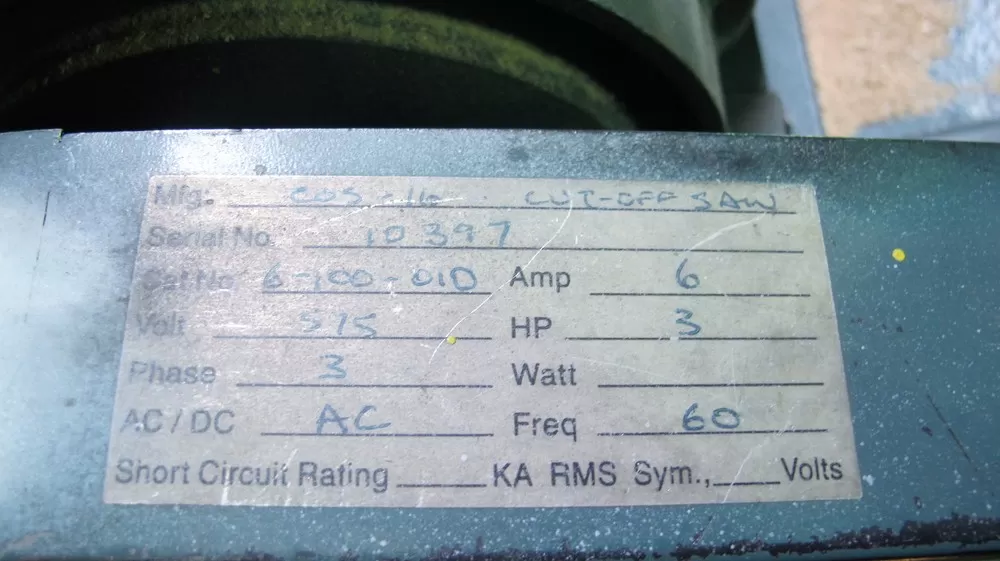 Mfg: COS-16 CUT-OFF SAW
Serial No. 10397
Cat No. 6-100-01D Amp 6
Volt 575 HP 3
Phase 3 Watt
AC / DC AC Freq 60
Short Circuit Rating KA RMS Sym., Volts